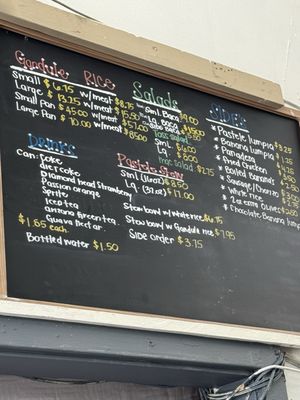 Gandule Rice
Small $6.75 w/meat $8.75
Large $13.25 w/meat $15.50
Small pan $45.00 w/meat $57.00
Large Pan $70.00 w/meat $85.00
Salads
Sml. Baca
Lg. Baca
Sml. $6.00
Lg.
mac salad $2.75
SIDES
* Pastele lumpia $3.25
* Banana Lumpia
* Panadera
* Fried Chicken
* Boiled Bananas
* Sausage/Chorizo
* White Rice
* 2oz extra Olives
* Chocolate-Banana Lumpia
DRINKS
Can: Coke
diet coke
Diamond head Strawberry
Passion orange
Sprite
Iced tea
Green Tea
Guava Nectar
$1.65 each
Bottled water $1.50
Pastele Stew
Sml (16oz) $8.50
Lg. (32oz) $17.00
Stew bowl w/ white rice $6.75
Stew bowl w/ Gandule rice $7.95
Side order $3.75